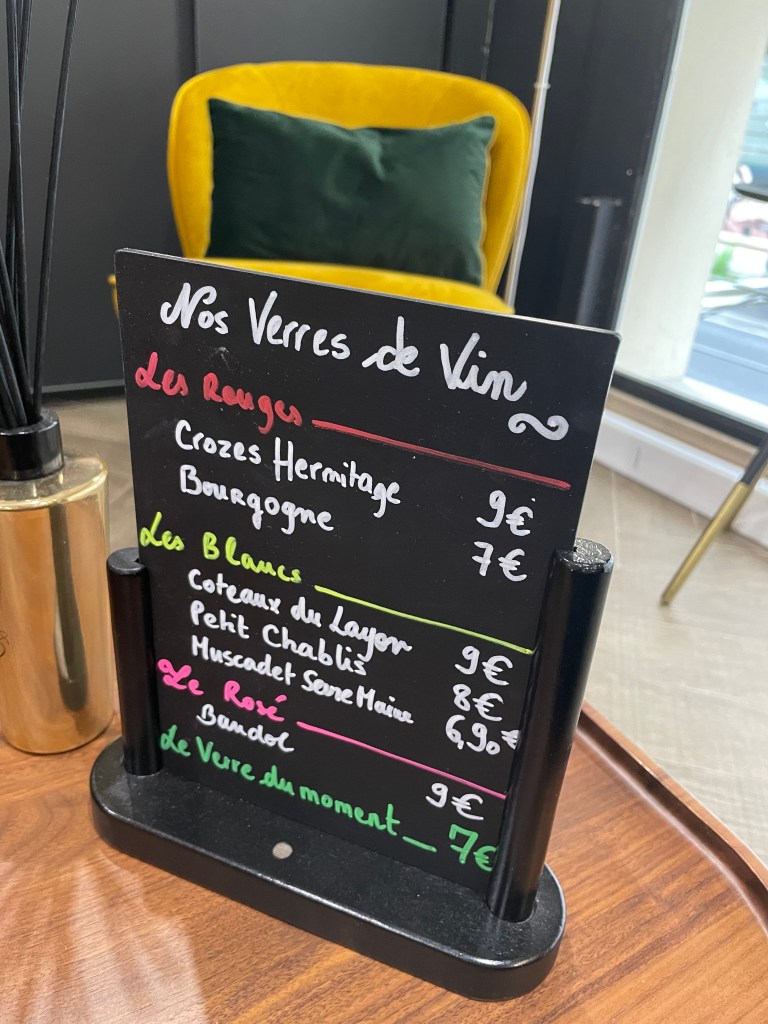 Nos Verres de Vin
Les Rouges
Crozes Hermitage 9€
Bourgogne 7€
Les Blancs
Coteaux du Layon 9€
Petit Chablis 8€
Muscadet Sevre Maine 6,90€
Le Rosé
Bandol 9€
Le Verre du moment _ 7€